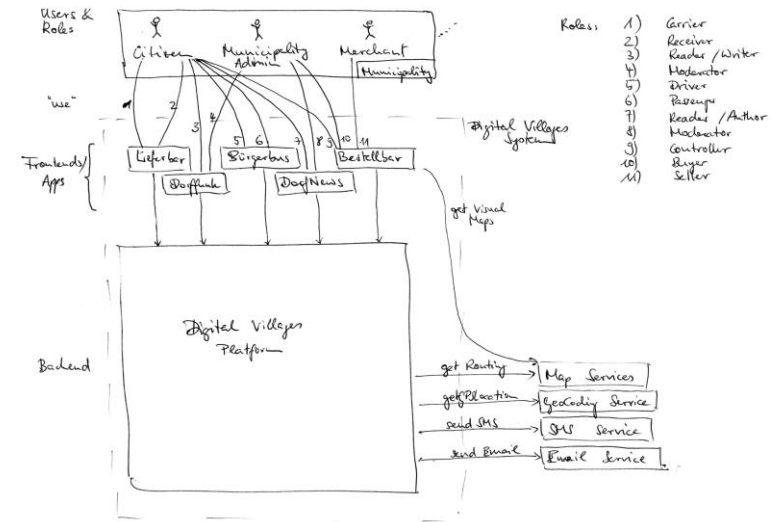 Users &
Roles
Citizen
Municipality
Admin
Merchant
Municipality
Roles:
1) Carrier
2) Receiver
3) Reader / Writer
4) Moderator
5) Driver
6) Passenger
7) Reader / Author
8) Moderator
9) Controller
10) Buyer
11) Seller
"use"
1
2
3
4
5
6
7
8
9
10
11
Digital Villages
System
Frontends/
Apps
Lieferbar
Bürgerbus
Bestellbar
Dorffunk
DorfNews
get Visual
Maps
Digital Villages
Platform
Backend
get Routing
Map Services
getGPSLocation
GeoCoding Service
send SMS
SMS Service
send Email
Email Service